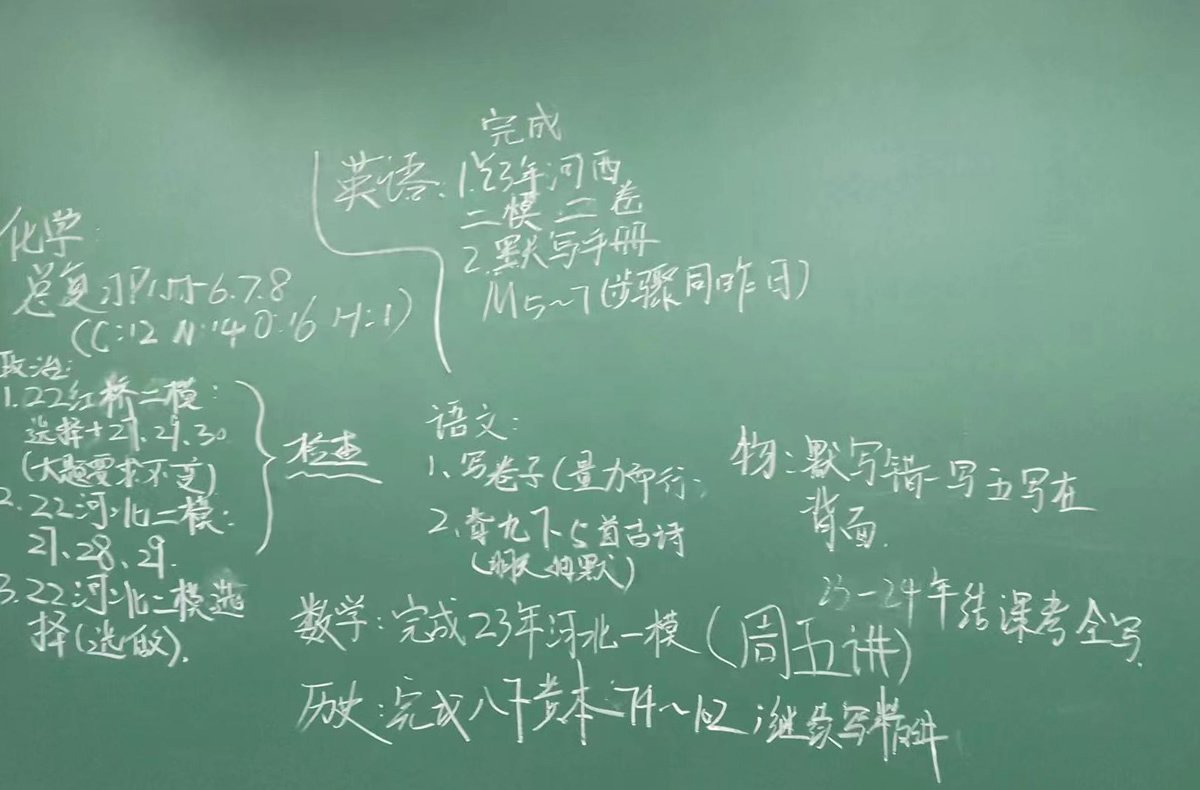 化学:
总复习P151-6.7.8
(C:12 N:14 O:16 H:1)
政治:
1.22红桥二模:
选择+27.29.30
(大题要求不变)
2.22河北二模:
27、28、29.
3.22河北二模选
择(选做).
检查
完成
英语:1.23年河西
二模 二卷
2.默写手册
M5~7(步骤同昨日)
语文:
1、写卷子(量力而行;
2、背九下5首古诗
(明天 默)
物:默写错一写五写在
背面.
23-24年结课考全写.
数学:完成23年河北一模(周五讲)
历史:完成八下 本 74~102;继续写